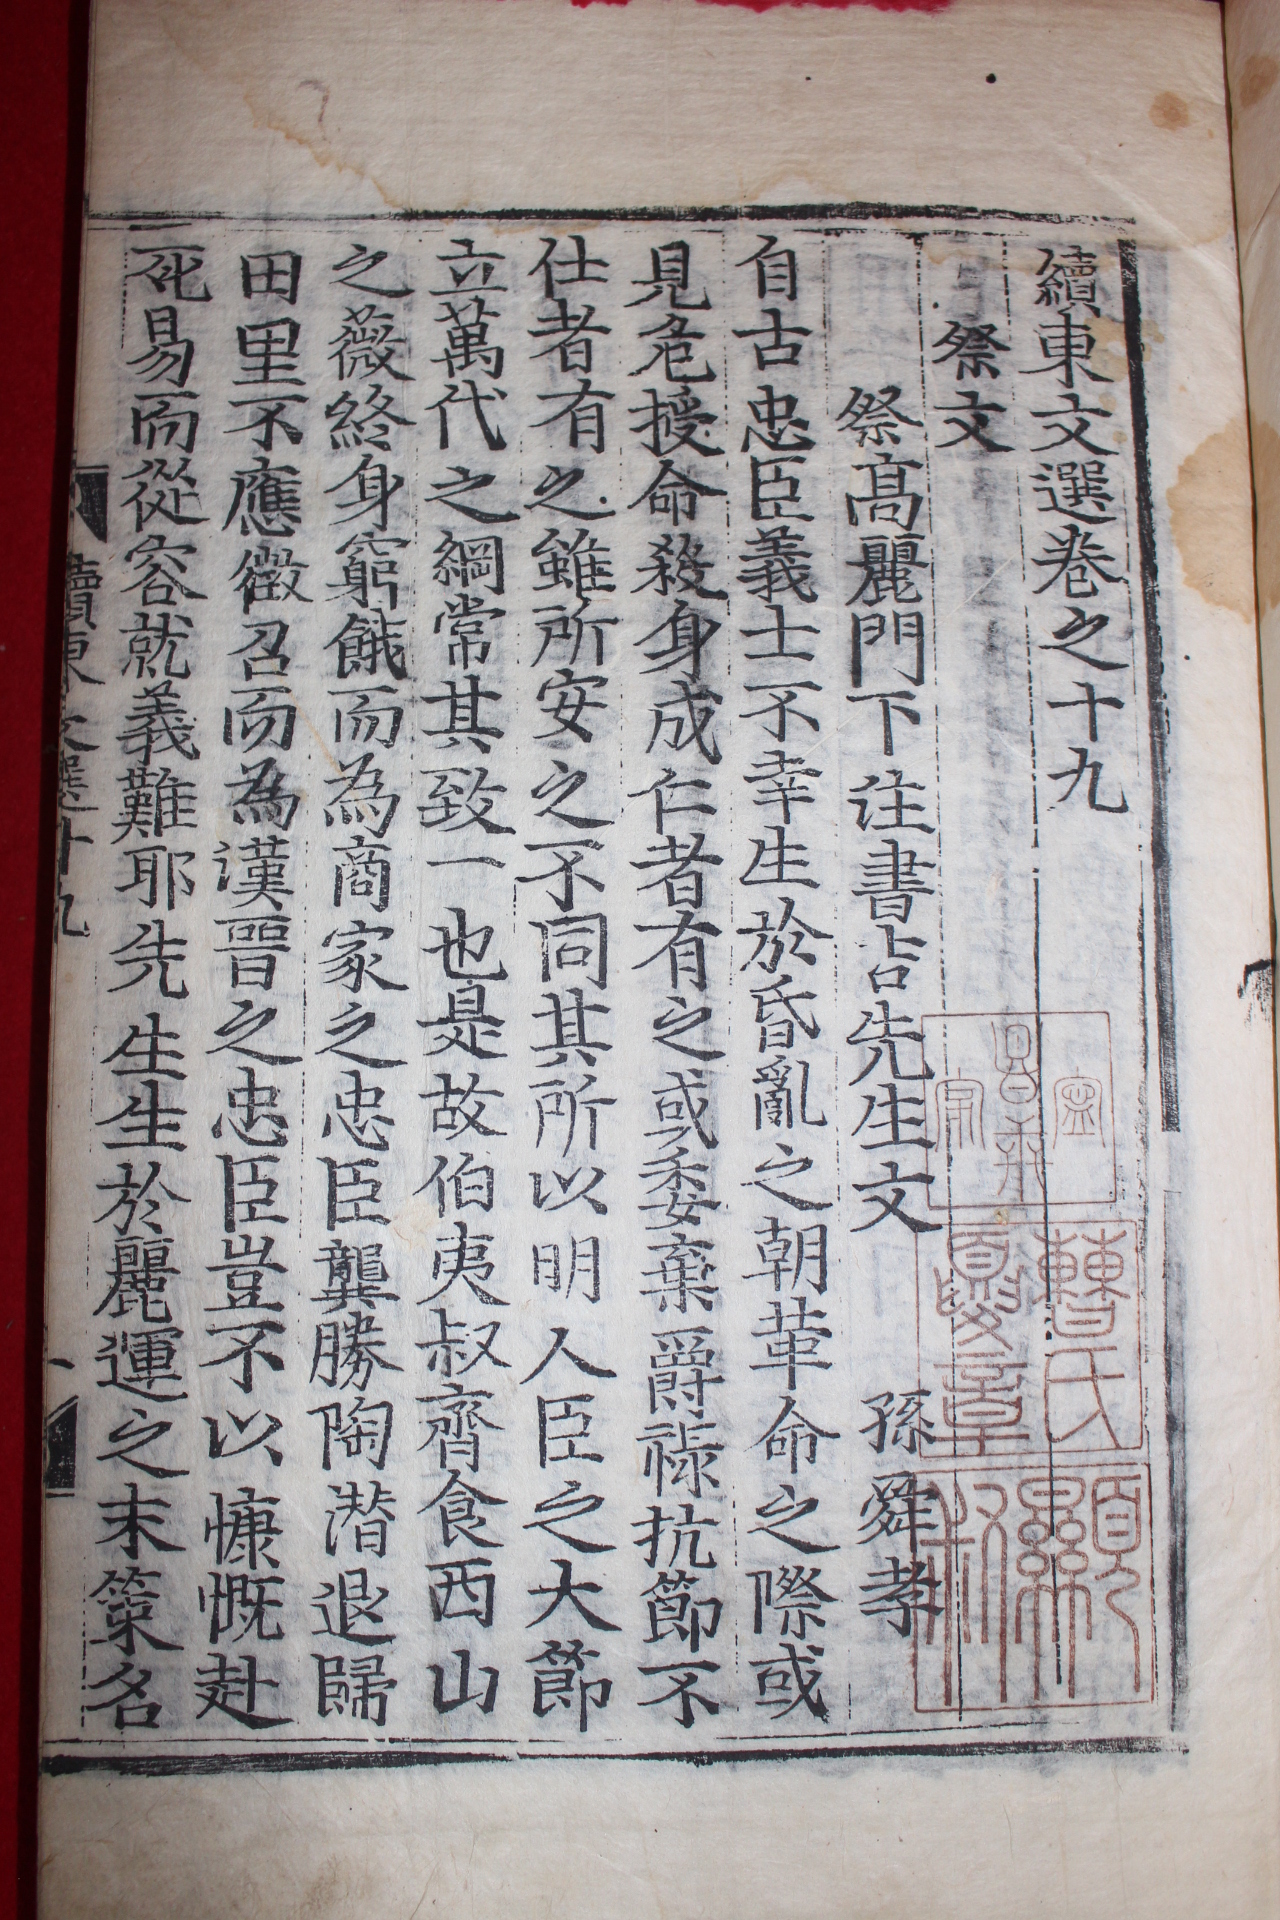 續東文選卷之十九
祭文
祭高麗門下注書吉先生文 孫舜孝
自古忠臣義士不幸生於昏亂之朝革命之際或
見危授命殺身成仁者有之或委棄爵祿抗節不
仕者有之雖所安之不同其所以明人臣之大節
立萬代之綱常其致一也是故伯夷叔齊食西山
之薇終身窮餓而為商家之忠臣龔勝陶潛退歸
田里不應徵召而為漢晉之忠臣豈不以慷慨赴
死易而從容就義難耶先生生於麗運之末策名
續東文選十九
一
曺氏
章